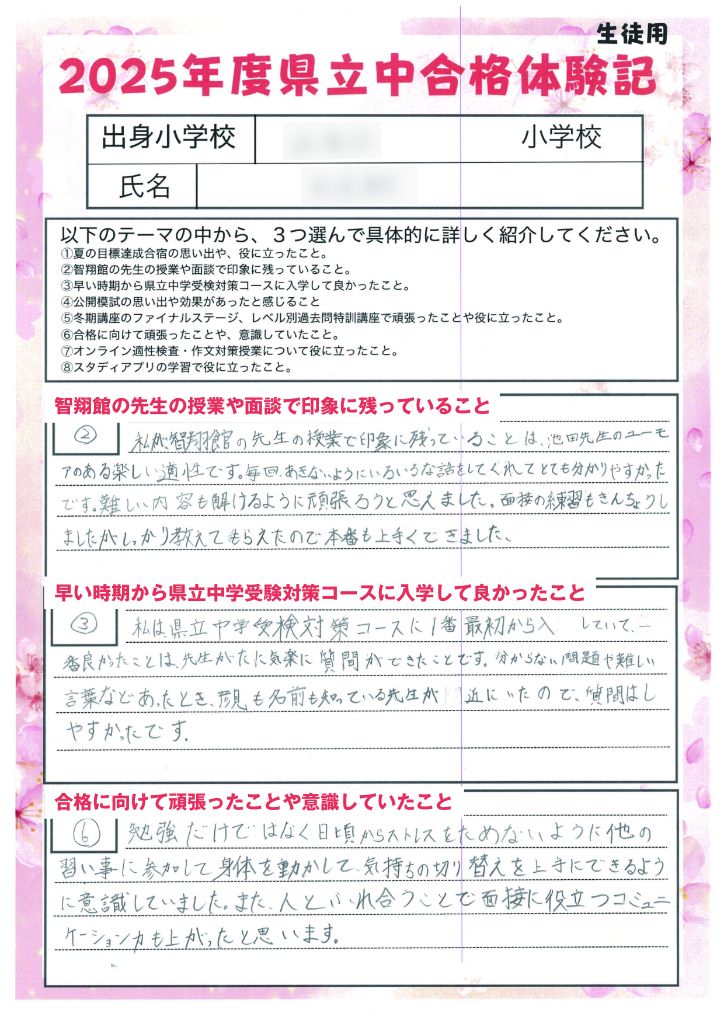 生徒用
2025年度県立中合格体験記
出身小学校 小学校
氏名
以下のテーマの中から、３つ選んで具体的に詳しく紹介してください。
①夏の目標達成合宿の思い出や、役に立ったこと。
②智翔館の先生の授業や面談で印象に残っていること。
③早い時期から県立中学受検対策コースに入学して良かったこと。
④公開模試の思い出や効果があったと感じること
⑤冬期講座のファイナルステージ、レベル別過去問特訓講座で頑張ったことや役に立ったこと。
⑥合格に向けて頑張ったことや、意識していたこと。
⑦オンライン適性検査・作文対策授業について役に立ったこと。
⑧スタディアプリの学習で役に立ったこと。
智翔館の先生の授業や面談で印象に残っていること
② 私が智翔館の先生の授業で印象に残っていることは、池田先生のユーモ
アのある楽しい適性です。毎回、あきないようにいろいろな話をしてくれてとても分かりやすかった
です。難しい内容も解けるように頑張ろうと思えました。面接の練習もきんちょうし
ましたがしっかり教えてもらえたので本番も上手くできました。
早い時期から県立中学受験対策コースに入学して良かったこと
③ 私は県立中学受検対策コースに1番最初から入 していて、一
番良かったことは、先生がたに気楽に質問ができたことです。分からない問題や難しい
言葉などあったとき、顔も名前も知っている先生が 近にいたので、質問はし
やすかったです。
合格に向けて頑張ったことや意識していたこと
⑥ 勉強だけではなく日頃からストレスをためないように他の
習い事に参加して身体を動かして、気持ちの切り替えを上手にできるよう
に意識していました。また、人とふれ合うことで面接に役立つコミュニ
ケーション力も上がったと思います。